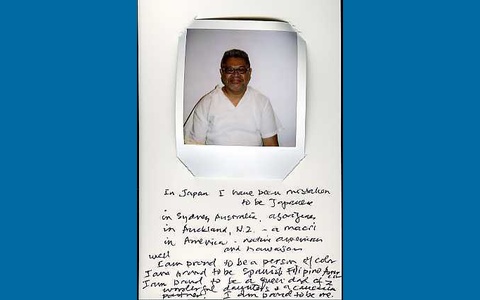 In Japan I have been mistaken
to be Japanese
in Sydney Australia, aborigine,
in Auckland, N.Z. - a maori
in America - native american
and hawaiian
well
I am proud to be a person of color
I am proud to be Spanish Filipino
I am proud to be a queer dad of 2
wonderful daughters & a caucasian
partner. I am proud to be me.